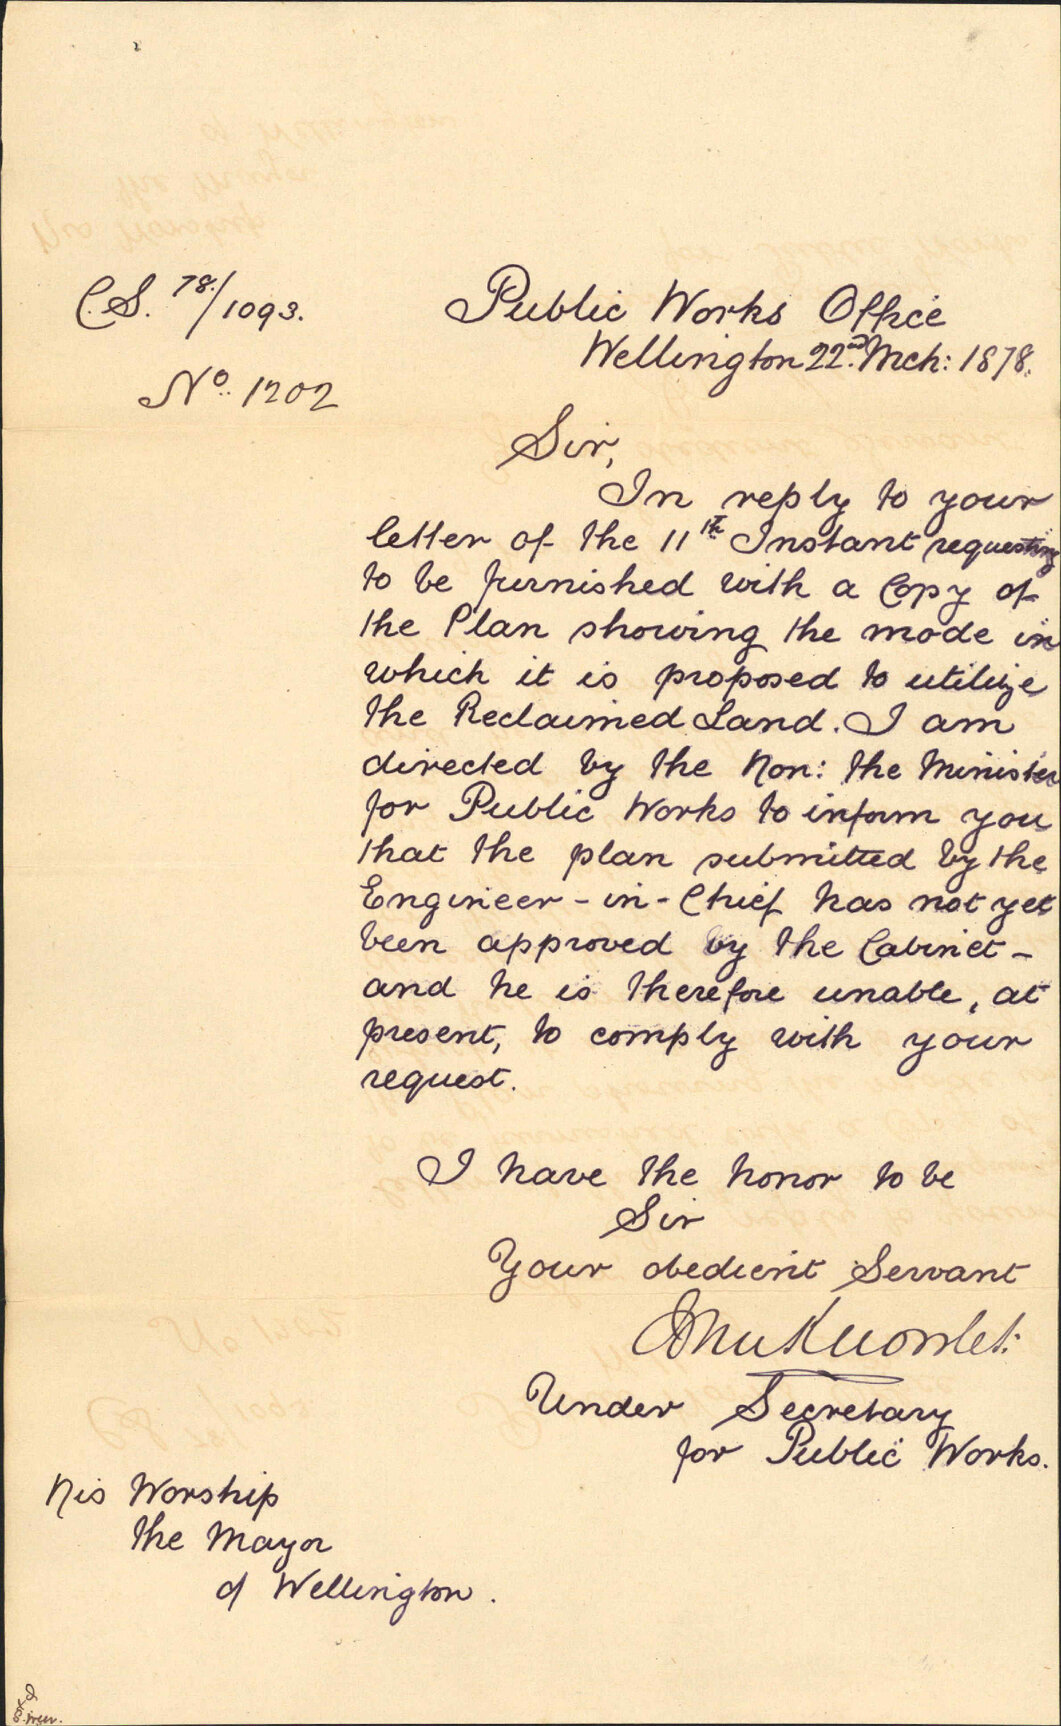 C.S. 78/1093.
Public Works Office
Wellington 22nd. Mch: 1878.
No. 1202
Sir,
In reply to your
letter of the 11th Instant requesting
to be furnished with a Copy of
the Plan showing the mode in
which it is proposed to utilize
the Reclaimed Land. I am
directed by the Hon: the Minister
for Public Works to inform you
that the plan submitted by the
Engineer-in-Chief has not yet
been approved by the Cabinet -
and he is therefore unable, at
present, to comply with your
request.
I have the honor to be
Sir
Your obedient Servant
Under Secretary
for Public Works.
His Worship
the Mayor
of Wellington.